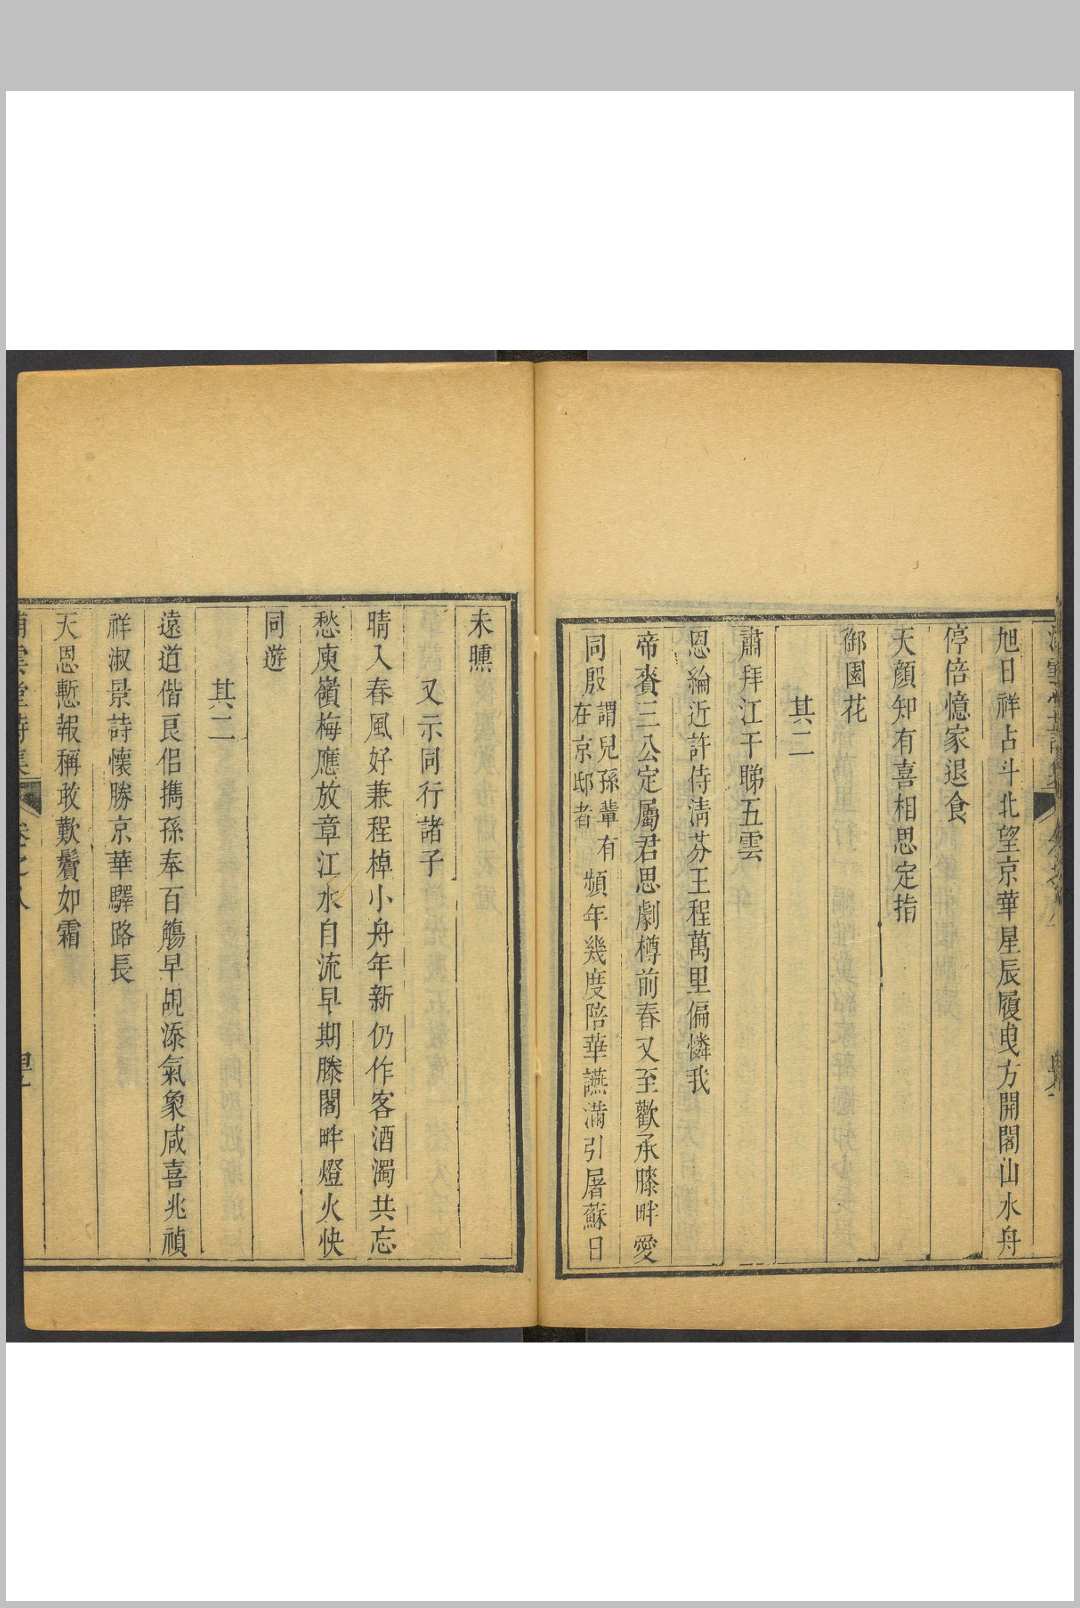 旭日祥占斗北望京華星辰履曳方開閣山水舟
停倍憶家退食
天顏知有喜相思定指
御園花
其二
肅拜江干睇五雲
恩綸近許侍清芬王程萬里偏憐我
帝賚三公定屬君思劇樽前春又至歡承膝畔愛
同殷謂兒孫輩有在京邸者頻年幾度陪華讌滿引屠蘇日
未曛
又示同行諸子
晴入春風好兼程棹小舟年新仍作客酒濁共忘
愁庾嶺梅應放章江水自流早期滕閣畔燈火快
同遊
其二
遠道偕良侶擕孫奉百觴早覘添氣象咸喜兆禎
祥淑景詩懷勝京華驛路長
天恩慙報稱敢歎鬢如霜
雲堂詩集 卷之八